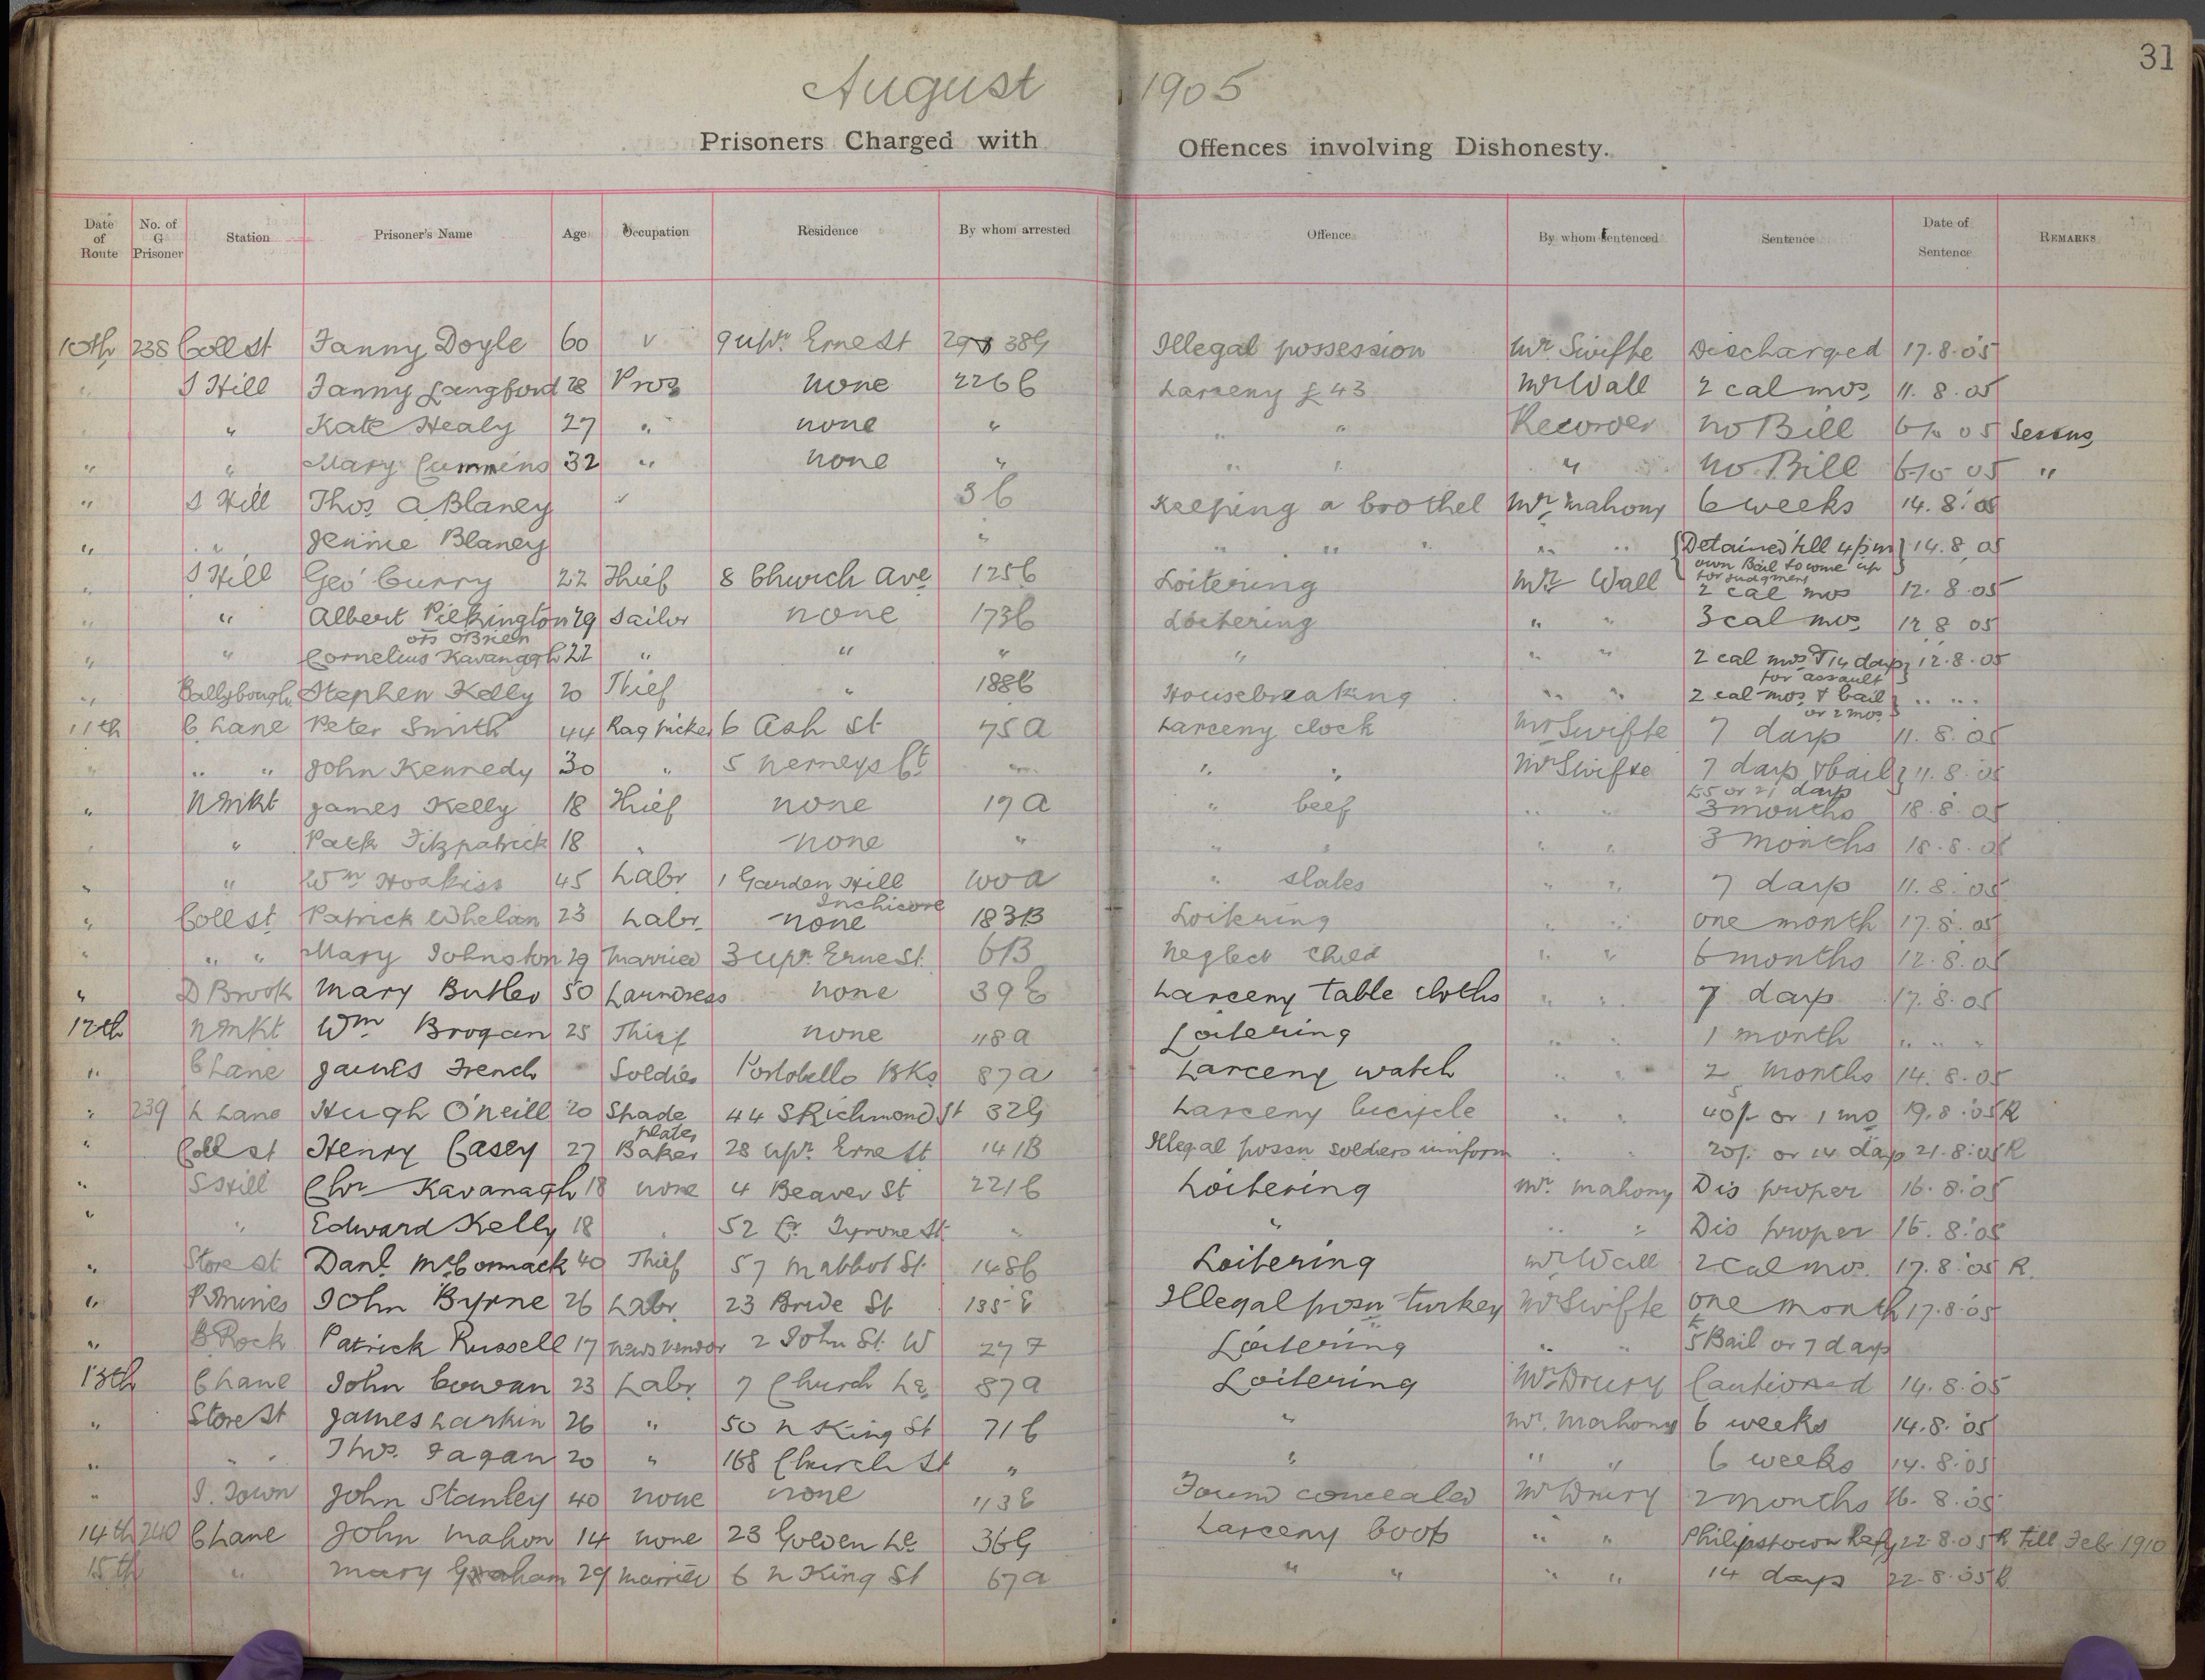 31
August 1905
Prisoners Charged with Offences involving Dishonesty.
Date of Route No. of G Prisoner Station Prisoner's Name Age Occupation Residence By whom arrested Offence By whom sentenced Sentence Date of Sentence Remarks
10th 238 Coll St Fanny Doyle 60 v 9 upr. Erne St 38G Illegal possession Mr Swifte Discharged 17.8.05
" S Hill Fanny Langford 28 Pros none 226C Larceny £43 Mr Wall 2 cal mos 11.8.05
" Kate Healy 27 " none " " " Recorder No Bill 05 Sessns
" " Mary Cummins 32 " none " " " " No Bill 05 "
" S Hill Thos. A Blaney " 3C Keeping a brothel Mr Mahony 6 weeks 14.8.05
" " Jennie Blaney " " " " " " {Detained till 4 pm} 14.8.05
own Bail to come up
for Judgment
" S Hill Geo Curry 22 Thief 8 Church Ave 125C Loitering Mr Wall 2 cal mos 12.8.05
" " Albert Pilkington 29 Sailor none 173C Loitering " " 3 cal mos 12 8 05
ors O'Brien
" " Cornelius Kavanagh 22 " " " " " " 2 cal mos & 14 days} 12.8.05
for assault
" Ballybough Stephen Kelly 20 Thief " 188C Housebreaking " " 2 cal mos & bail} " "
or 2 mos
11th C Lane Peter Smith 44 Rag picker 6 Ash St 75A Larceny clock Mr Swifte 7 days 11.8.05
" " " John Kennedy 30 " 5 Nerneys Ct " " " Mr Swifte 7 days & bail} 11.8.05
£5 or 21 days
" N Mkt James Kelly 18 Thief none 19A " beef " " 3 months 18.8.05
" " Patk Fitzpatrick 18 " none " " " " " 3 months 18.8.05
" " Wm Hoskiss 45 Labr 1 Garden Hill 100A " slates " " 7 days 11.8.05
Inchicore
" Coll St Patrick Whelan 23 Labr none 183B Loitering " " one month 17.8.05
" " " Mary Johnston 29 Married 3 Upr. Erne St. 6B Neglect child " " 6 months 12.8.05
" D Brook Mary Butler 50 Laundress none 39E Larceny table cloths " " 7 days 17.8.05
12th N Mkt Wm Brogan 25 Thief none 118A Loitering " " 1 month " " "
" C Lane James French " Soldier Portobello Bks 87A Larceny watch " " 2 months 14.8.05
" 239 L Lane Hugh O'Neill 20 Spade 44 S Richmond St 32G Larceny bicycle " " 40/- or 1 mo 19.8.05 R
plater
" Coll St Henry Casey 27 Baker 28 Upr. Erne St 141B Illegal possn soldiers uniform " " 20/- or 14 days 21.8.05 R
" S Hill Chr Kavanagh 18 none 4 Beaver St 221C Loitering Mr. Mahony Dis proper 16.8.05
" " Edward Kelly 18 " 52 Lr Tyrone St. " " " " Dis proper 16.8.05
" Store St Danl. McCormack 40 Thief 57 Mabbot St. 148C Loitering Mr Wall 2 cal mos. 17.8.05 R.
" R Mines John Byrne 26 Labr 23 Bride St 135E Illegal possn turkey Mr Swifte one month 17.8.05
" B Rock Patrick Russell 17 News vendor 2 John St. W 27F Loitering " " £5 Bail or 7 days
13th C Lane John Cowan 23 Labr 7 Church La. 87A Loitering Mr Drury Cautioned 14.8.05
" Store St James Larkin 26 " 50 N King St 71C " Mr. Mahony 6 weeks 14.8.05
" " " Thos. Fagan 20 " 168 Church St " " " " 6 weeks 14.8.05
" I. Town John Stanley 40 none none 113E Found concealed Mr Drury 2 months 16.8.05
14th 240 C Lane John Mahon 14 none 23 Golden La. 36G Larceny boots " " Philipstown Refy 22.8.05 R till Feb 1910
15th " Mary Graham 29 Married 6 N King St 67A " " " " 14 days 22.8.05 R